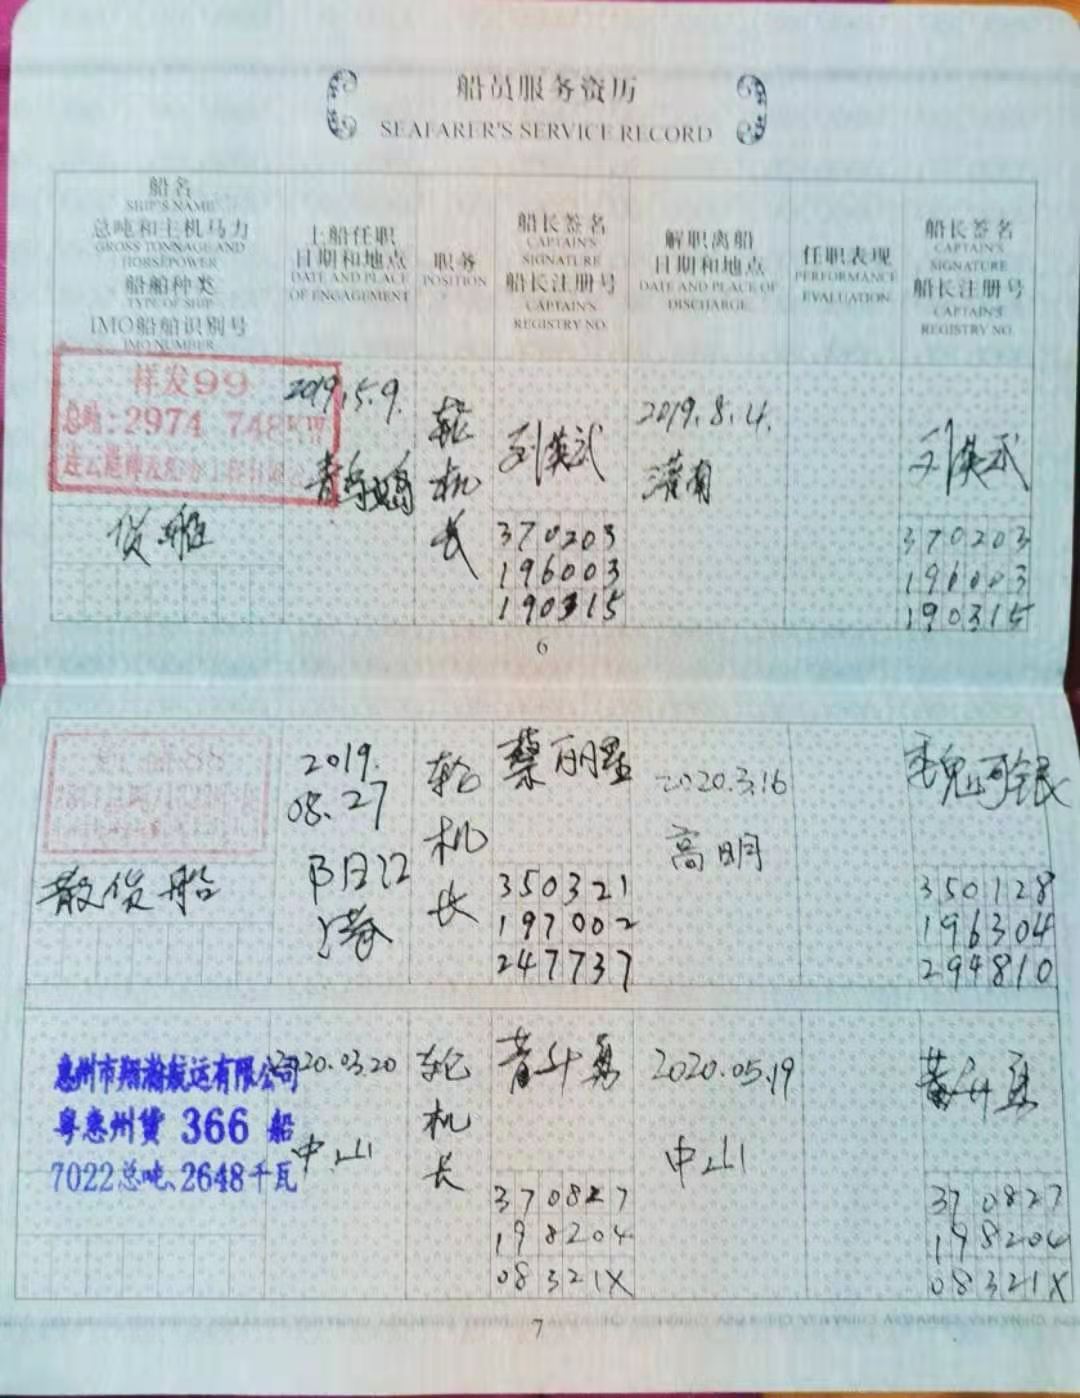 船员服务资历
SEAFARER'S SERVICE RECORD
船名
SHIP'S NAME
总吨和主机马力
GROSS TONNAGE AND
HORSEPOWER
船舶种类
TYPE OF SHIP
IMO船舶识别号
IMO NUMBER
上船任职
日期和地点
DATE AND PLACE
OF ENGAGEMENT
职务
POSITION
船长签名
CAPTAIN'S
SIGNATURE
船长注册号
CAPTAIN'S
REGISTRY NO.
解职离船
日期和地点
DATE AND PLACE OF
DISCHARGE
任职表现
PERFORMANCE
EVALUATION
船长签名
CAPTAIN'S
SIGNATURE
船长注册号
CAPTAIN'S
REGISTRY NO.
祥发99
总吨:2974 748KW
连云港
货船
2019.5.9.
青岛
轮机长
刘英武
370203
196003
190315
2019.8.4.
灌南
刘英武
370203
196003
190315
6
散货船
2019.
08.27
阳江
港
轮机长
蔡丽星
350321
197002
247737
2020.3.16
高明
魏可全民
350128
196304
294810
惠州市翔瀚航运有限公司
粤惠州货 366 船
7022总吨、2648千瓦
2020.03.20
中山
轮机长
370827
198204
08321X
2020.05.19
中山
370827
198204
08321X
7